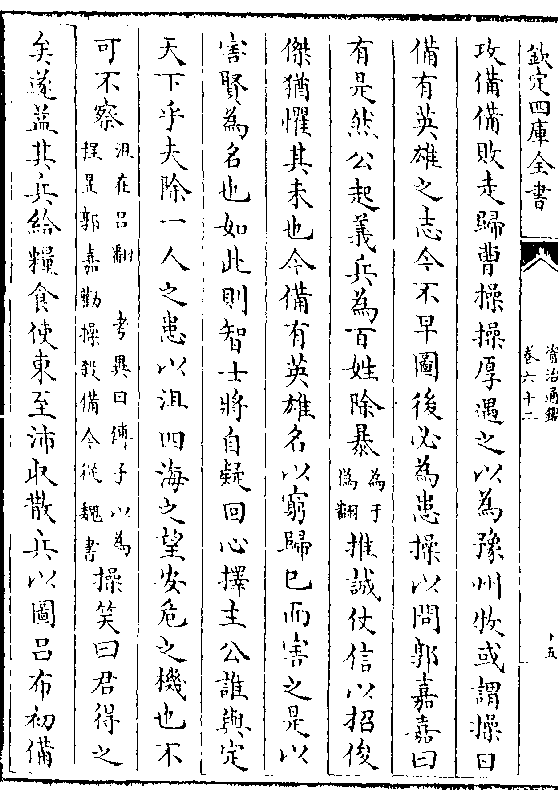 欽定四庫全書
資治通鑑
卷六十二
十五
攻備備敗走歸曹操操厚遇之以為豫州牧或謂操曰
備有英雄之志今不早圖後必為患操以問郭嘉嘉曰
有是然公起義兵為百姓除暴為于偽翻推誠仗信以招俊
傑猶懼其未也今備有英雄名以窮歸已而害之是以
害賢為名也如此則智士將自疑回心擇主公誰與定
天下乎夫除一人之患以沮四海之望安危之機也不
可不察沮在呂翻 考異曰傅子以為程昱郭嘉勸操殺備今從魏書操笑曰君得之
矣遂益其兵給糧食使東至沛收散兵以圖呂布初備